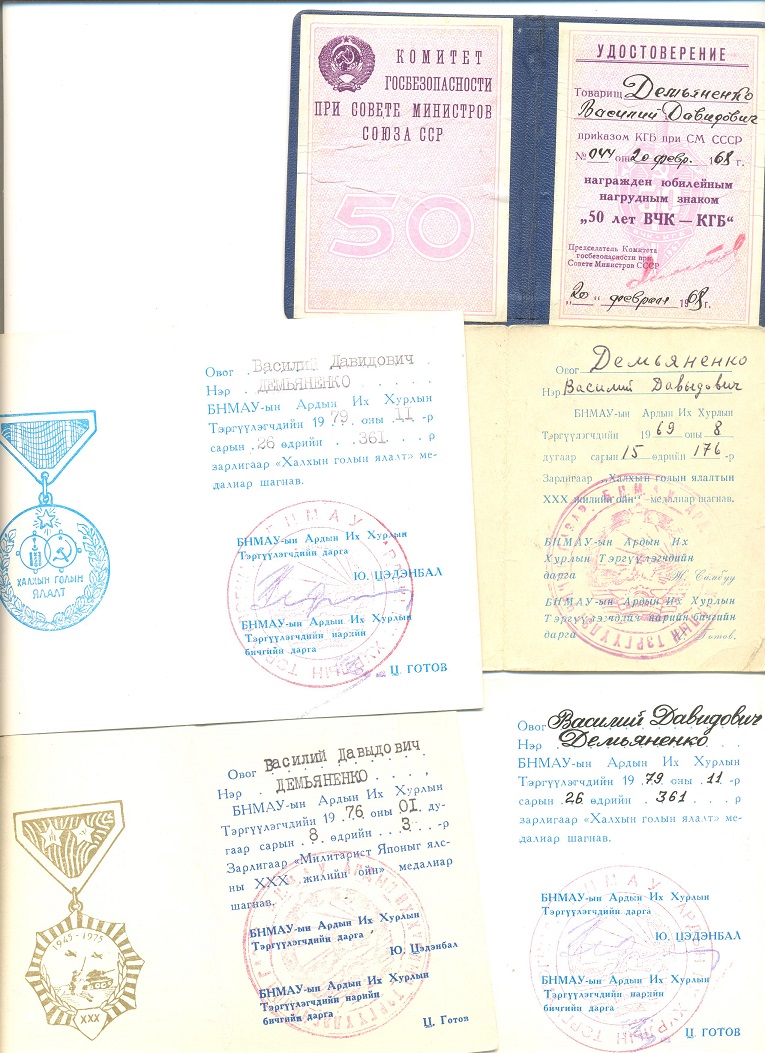 КОМИТЕТ
ГОСБЕЗОПАСНОСТИ
ПРИ СОВЕТЕ МИНИСТРОВ
СОЮЗА ССР
50
УДОСТОВЕРЕНИЕ
Товарищ Демьяненко
Василий Давидович
приказом КГБ при СМ СССР
№ 044 от 20 февр. 1968 г.
награжден юбилейным
нагрудным знаком
„50 лет ВЧК — КГБ“
Председатель Комитета
госбезопасности при
Совете Министров СССР
„20“ февраля 1968 г.
Овог Василий Давидович
Нэр ДЕМЬЯНЕНКО
БНМАУ-ын Ардын Их Хурлын
Тэргүүлэгчдийн 1979. оны 11 -р
сарын 26 өдрийн 361 р
зарлигаар «Халхын голын ялалт» ме-
далиар шагнав.
БНМАУ-ын Ардын Их Хурлын
Тэргүүлэгчдийн дарга
Ю. ЦЭДЭНБАЛ
БНМАУ-ын Ардын Их Хурлын
Тэргүүлэгчдийн нарийн
бичгийн дарга
Ц. ГОТОВ
ХАЛХЫН ГОЛЫН
ЯЛАЛТ
Овог Демьяненко
Нэр Василий Давыдович
БНМАУ-ын Ардын Их Хурлын
Тэргүүлэгчдийн 1969 оны 8
дугаар сарын 15 өдрийн 176 -р
Зарлигаар „Халхын голын ялалтын
XXX жилийн ойн" медалиар шагнав.
БНМАУ-ын Ардын Их
Хурлын Тэргүүлэгчдийн
дарга Ж. Самбуу
БНМАУ-ын Ардын Их Хурлын
Тэргүүлэгчдийн нарийн бичгийн
дарга Готов.
Овог Василий Давыдович
Нэр ДЕМЬЯНЕНКО
БНМАУ-ын Ардын Их Хурлын
Тэргүүлэгчдийн 1976 оны 01. ду-
гаар сарын 8 өдрийн 3 -р
Зарлигаар «Милитарист Японыг ялс-
ны XXX жилийн ойн» медалиар
шагнав.
БНМАУ-ын Ардын Их Хурлын
Тэргүүлэгчдийн дарга
Ю. Цэдэнбал
БНМАУ-ын Ардын Их Хурлын
Тэргүүлэгчдийн нарийн
бичгийн дарга
Ц. Готов
1945-1975
XXX
Овог Василий Давидович
Нэр Демьяненко
БНМАУ-ын Ардын Их Хурлын
Тэргүүлэгчдийн 1979 оны 11 -р
сарын 26 өдрийн 361 р
зарлигаар «Халхын голын ялалт» ме-
далиар шагнав.
БНМАУ-ын Ардын Их Хурлын
Тэргүүлэгчдийн дарга
Ю. ЦЭДЭНБАЛ
БНМАУ-ын Ардын Их Хурлын
Тэргүүлэгчдийн нарийн
бичгийн дарга
Ц. ГОТОВ